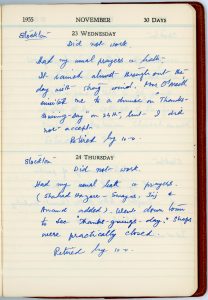 1955 NOVEMBER 30 DAYS
Stockton 23 WEDNESDAY
Did not work.
Had my usual prayers & bath.
It rained almost throughout the
day with strong wind. Mrs
invited me to a dinner on "Thanks-
giving-day" on 24th, but I did
not accept.
Retired by 10-0.
Stockton 24 THURSDAY
Did not work.
Had my usual bath & prayers.
(Shabad Hazare - & 
Anand added). Went down town
to see "Thanks-givings-day." Shops
were practically closed.
Retired by 10-0.